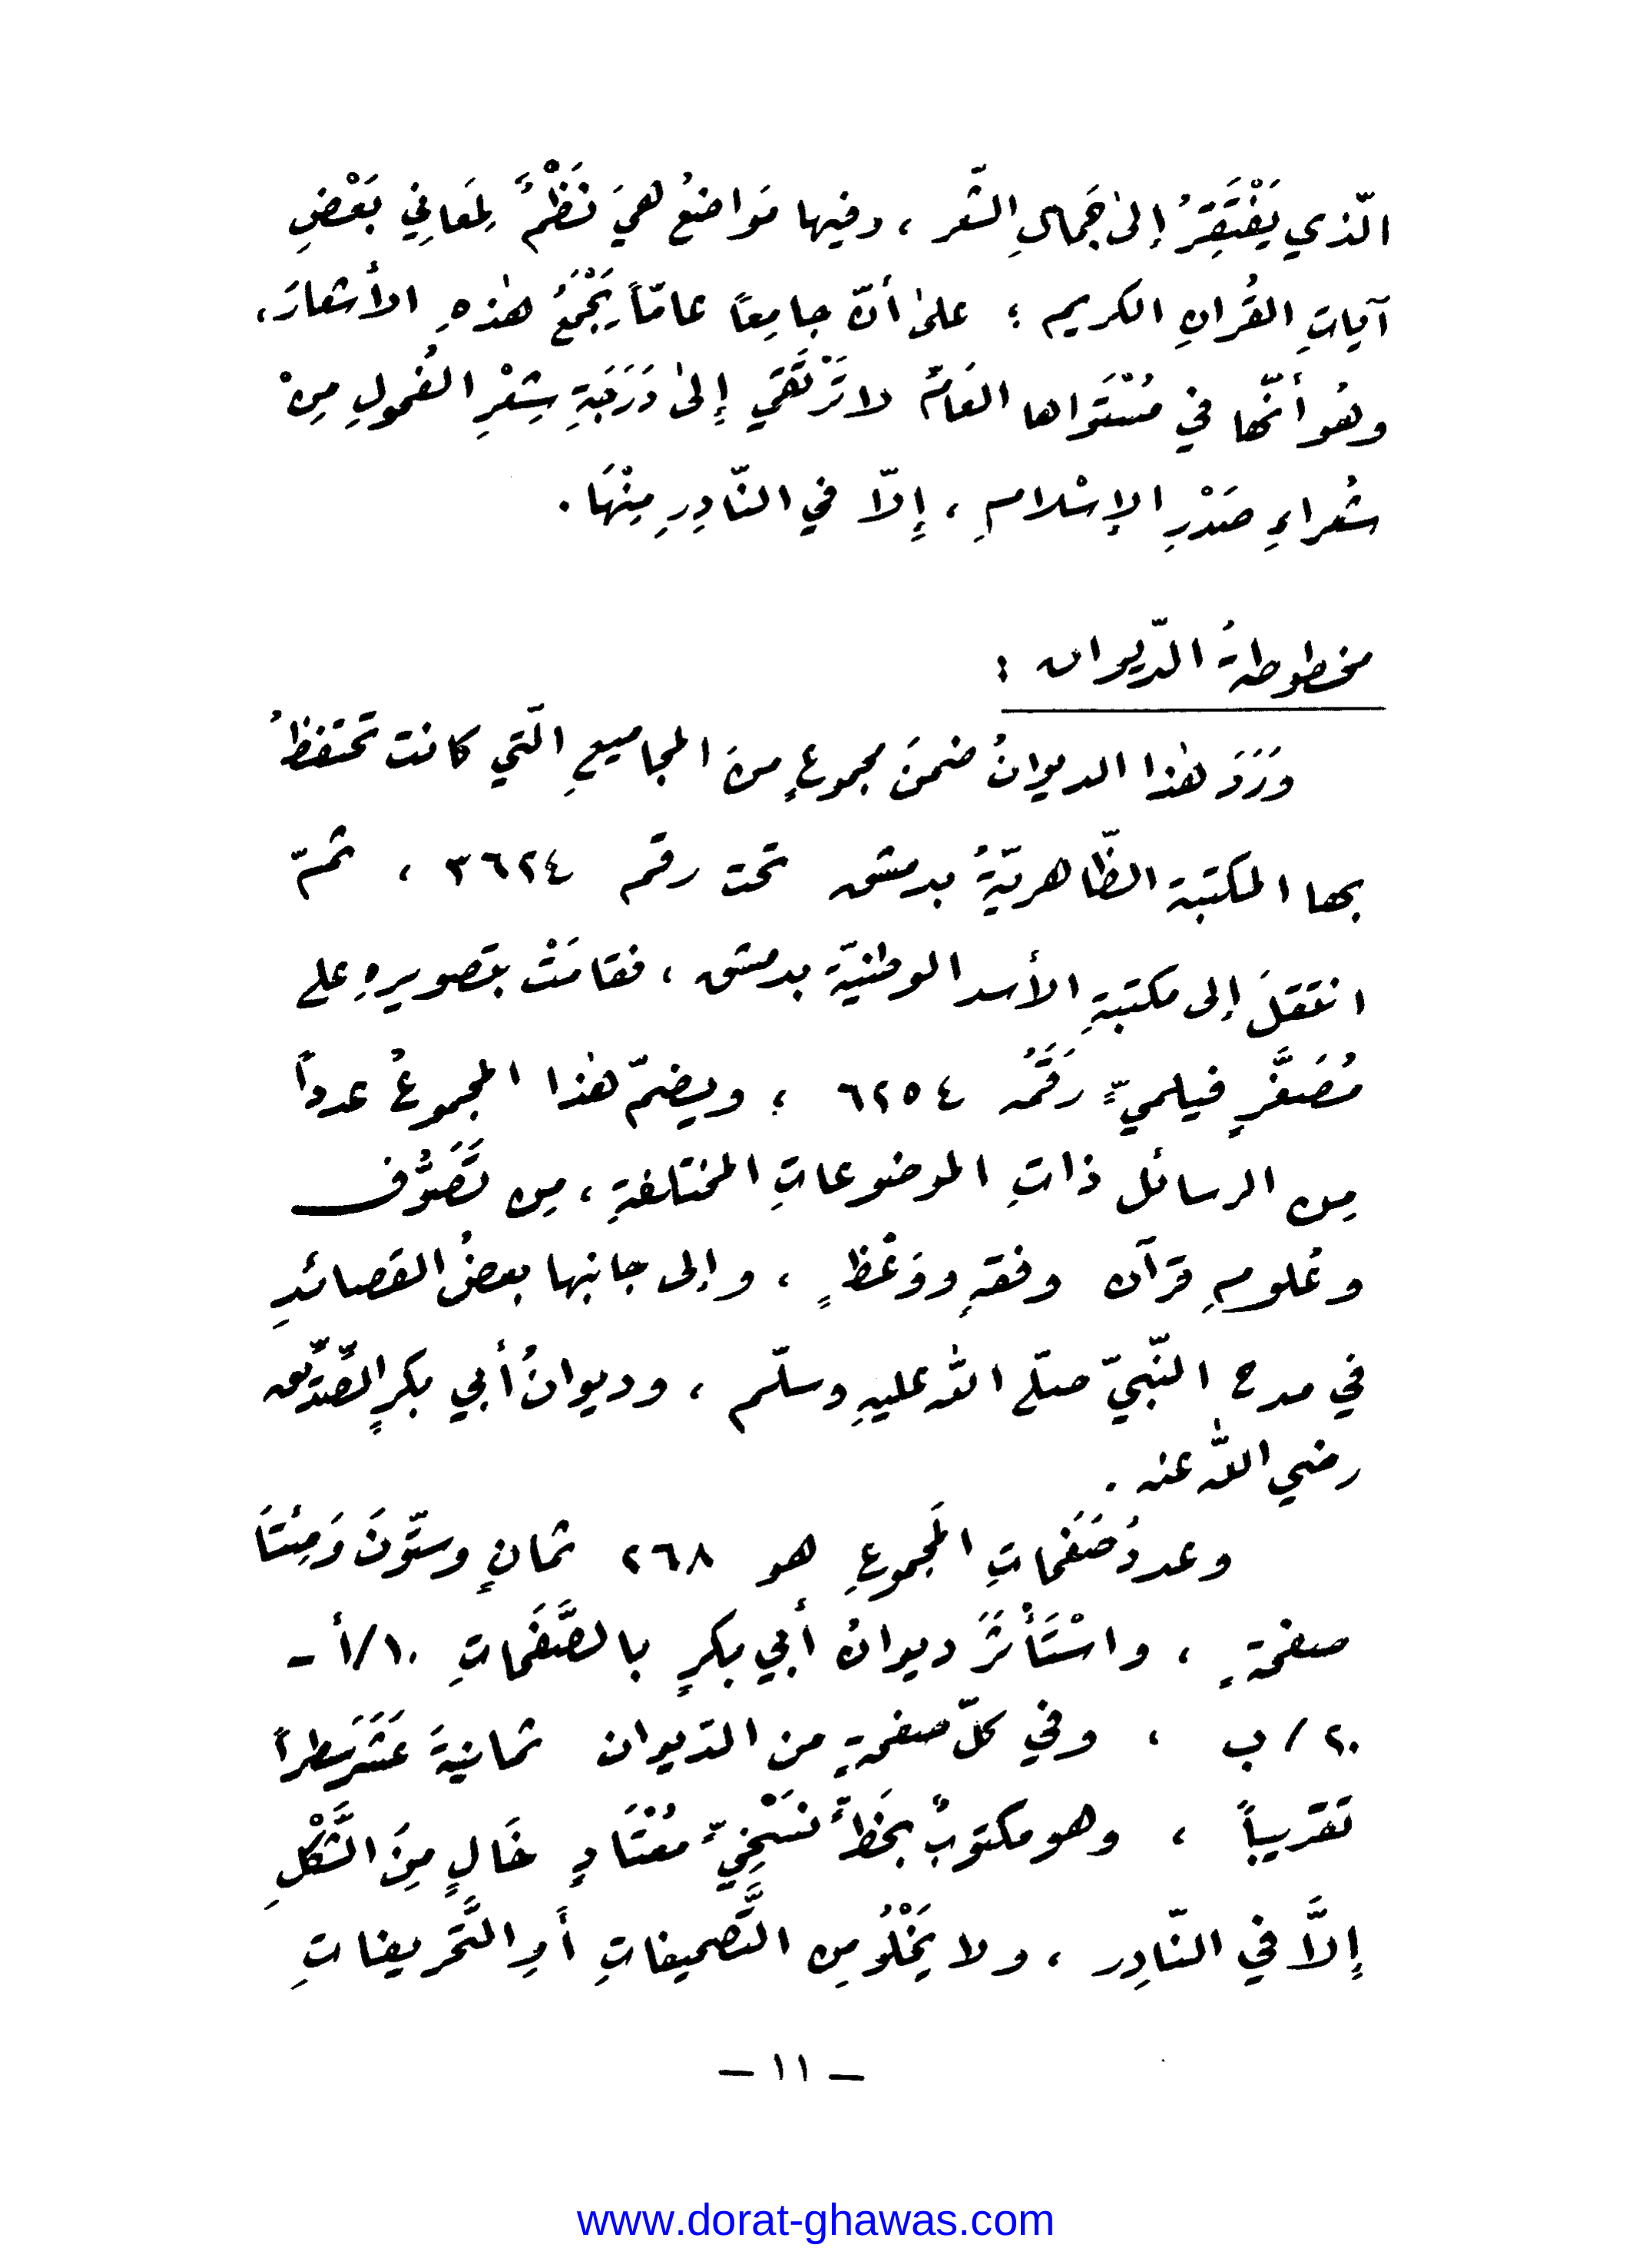 الّذي يَفْتَقِرُ إلىٰ جَمالِ الشّعر ، وفيها مَواضعُ هيَ نَظْمٌ لِمَعانِي بَعْضِ
آياتِ القُرانِ الكريم ؛ علىٰ أنّ جامِعًا عامّاً يَجْمَعُ هٰذهِ الأشعارَ،
وهُو أنّها في مُسْتَواها العَامّ لا تَرْتَقي إلىٰ دَرَجَةِ شِعْرِ الفُحولِ مِنْ
شُعراءِ صَدْرِ الإسْلامِ ، إلاّ في النّادِرِ مِنْهَا .
مخطوطةُ الدّيوان :
وَرَدَ هٰذا الديوانُ ضمنَ مجموعٍ منَ المجاميعِ الّتي كانت تحتفظُ
بها المكتبة الظّاهريّةُ بدمشق تحت رقم ٣٦٢٤ ، ثمّ
انتقلَ إلى مكتبةِ الأسد الوطنيّة بدمشق ، فقامَتْ بتصويرهِ على
مُصَغَّرٍ فيلميٍّ رَقَمُه ٦٢٥٤ ؛ ويضمّ هٰذا المجموعُ عدداً
مِن الرسائل ذاتِ الموضوعاتِ المختلفةِ ، مِن تَصَوُّف
وعُلومِ قرآن وفقهِ ووَعْظٍ ، وإلى جانبها بعضُ القصائدِ
في مدح النّبيّ صلّى اللّٰه عليهِ وسلّم ، وديوانُ أبي بكرٍ الصّدّيق
رضي اللّٰه عنه .
وعددُ صَفَحاتِ المَجموعِ هو ٢٦٨ ثمانٍ وستّونَ وَمِئتَا
صفحةٍ ، واسْتَأْثَرَ ديوانُ أبي بكرٍ بالصَّفَحاتِ ١٠/أ -
٢٠ / ب ، وفي كلّ صفحةٍ من الدّيوان ثمانيةَ عَشَرَ سَطراً
تَقريباً ، وهو مكتوبٌ بخَطٍّ نَسْخِيٍّ مُعْتَادٍ خَالٍ مِنَ الشَّكْلِ
إلاَّ في النّادِر ، ولا يَخْلُو مِن التَّصحيفاتِ أَوِ التَّحريفاتِ
- ١١ -
www.dorat-ghawas.com